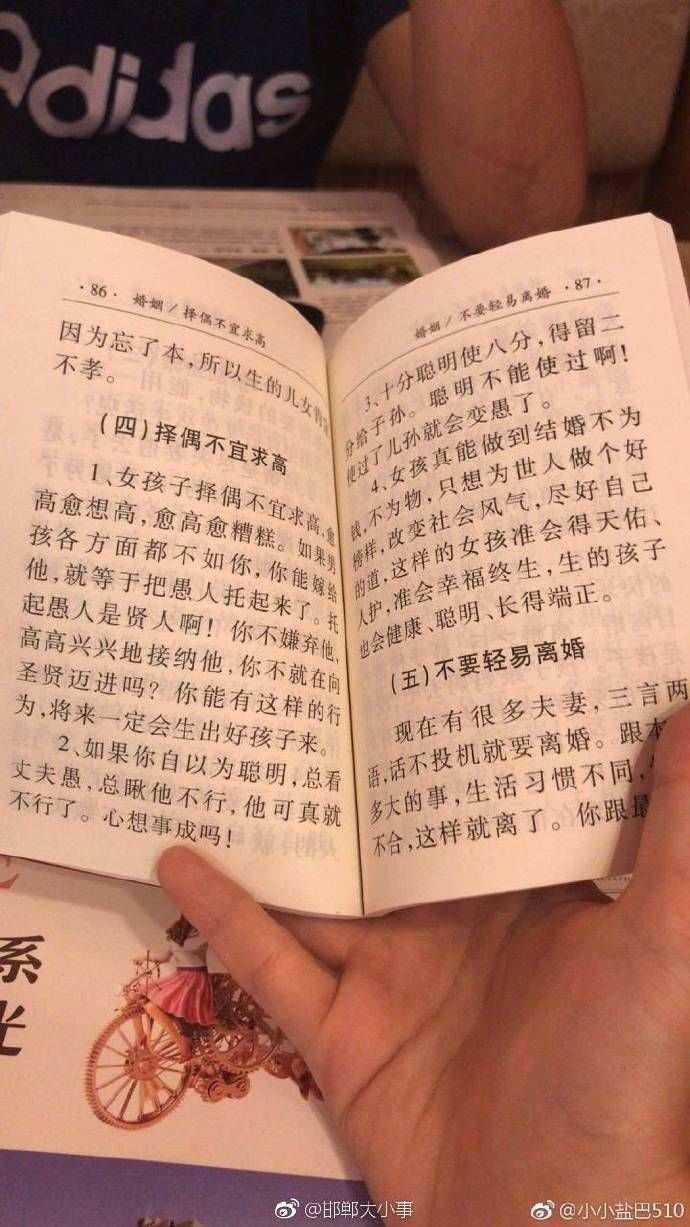 adidas
·86· 婚姻/择偶不宜求高
因为忘了本，所以生的儿女
不孝。
(四)择偶不宜求高
1、女孩子择偶不宜求高，愈
高愈想高，愈高愈糟糕。如果男
孩各方面都不如你，你能嫁给
他，就等于把愚人托起来了。托
起愚人是贤人啊！你不嫌弃他，
高高兴兴地接纳他，你不就在向
圣贤迈进吗？你能有这样的行
为，将来一定会生出好孩子来。
2、如果你自以为聪明，总看
丈夫愚，总瞅他不行，他可真就
不行了。心想事成吗！
婚姻/不要轻易离婚 ·87·
3、十分聪明使八分，得留二
分给子孙。聪明不能使过啊！
使过了儿孙就会变愚了。
4、女孩真能做到结婚不为
钱，不为物，只想为世人做个好
榜样，改变社会风气，尽好自己
的道，这样的女孩准会得天佑、
人护，准会幸福终生，生的孩子
也会健康、聪明、长得端正。
(五)不要轻易离婚
现在有很多夫妻，三言两
语，话不投机就要离婚。跟本
多大的事，生活习惯不同，
不合，这样就离了。你跟最
系
光
@邯郸大小事
@小小盐巴510